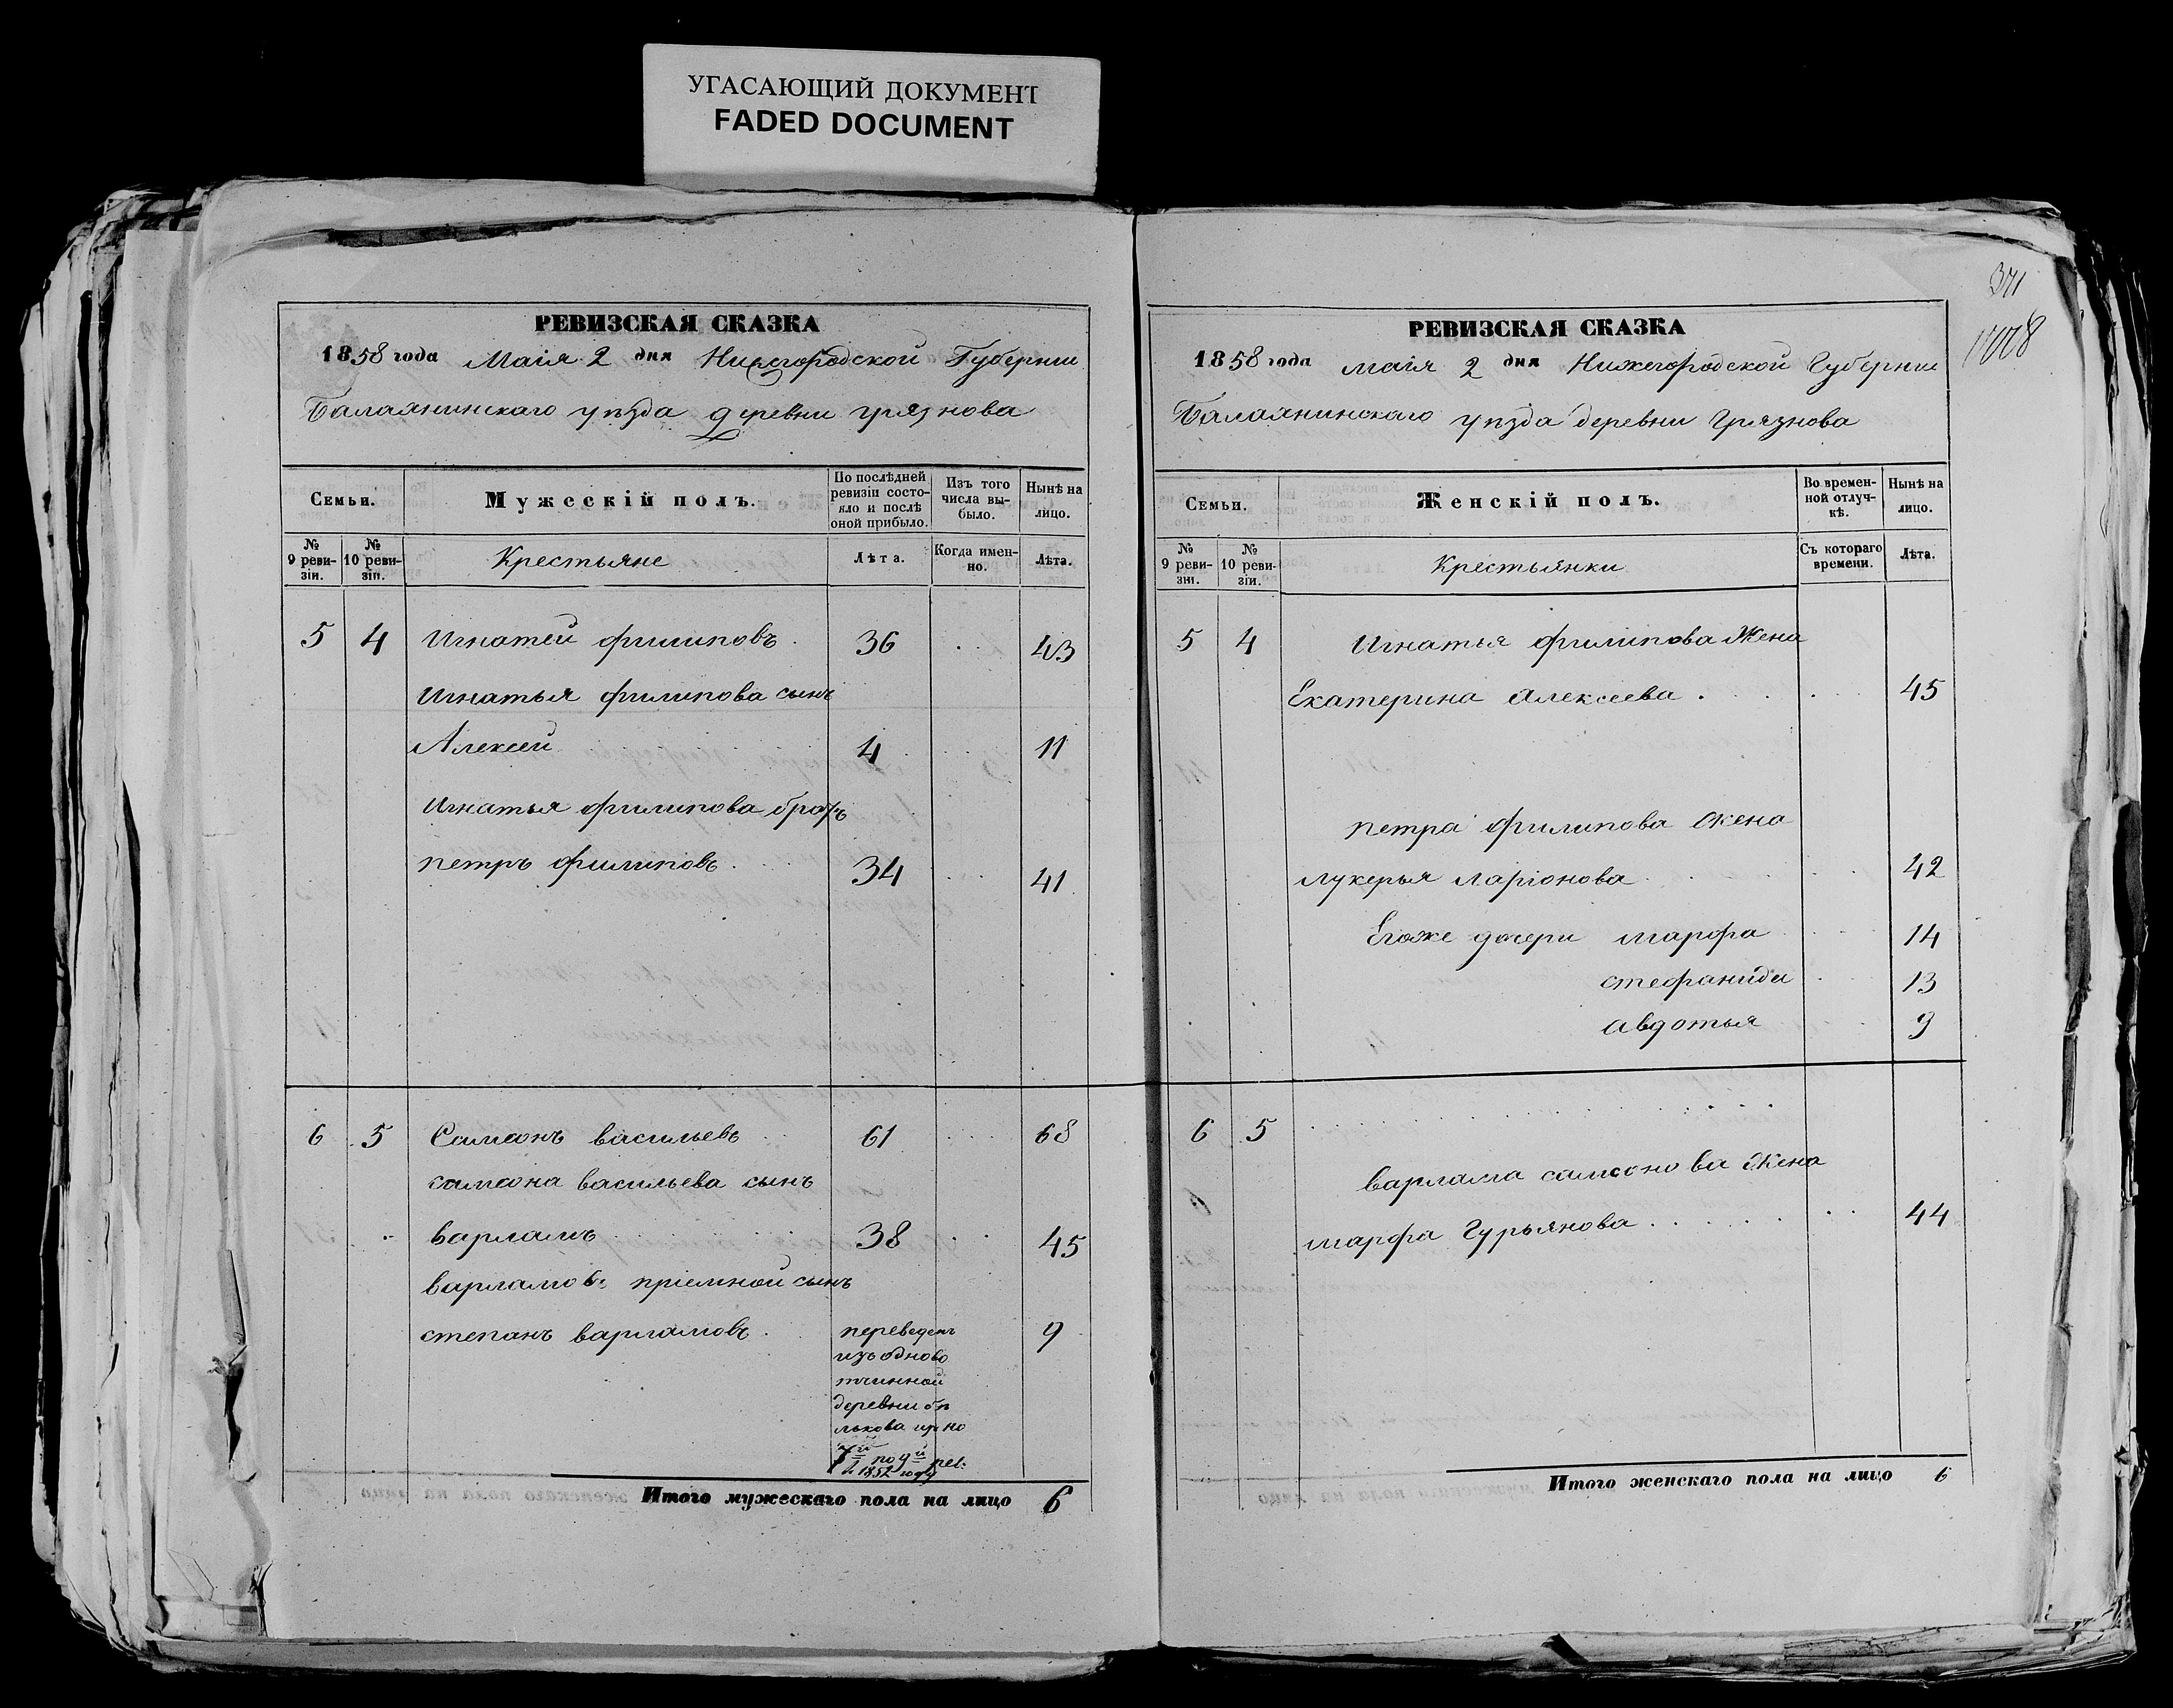 УГАСАЮЩИЙ ДОКУМЕНТ
FADED DOCUMENT
РЕВИЗСКАЯ СКАЗКА
1858 года Маія 2 дня Нижегородской Губернии
Балахнинскаго уѣзда деревни грязнова
Семьи.
Мужескій полъ.
По послѣдней ревизіи состояло и послѣ оной прибыло.
Изъ того числа выбыло.
Нынѣ на лицо.
№ 9 ревизіи.
№ 10 ревизіи.
Крестьяне
Лѣта.
Когда именно.
Лѣта.
5 4 Игнатей филиповъ 36 43
Игнатья филипова сынъ
Алексей 4 11
Игнатья филипова братъ
петръ филиповъ 34 41
6 5 Самсонъ васильевъ 61 68
самсона васильева сынъ
варламъ 38 45
варламовъ пріемной сынъ
степанъ варламовъ 9
переведенъ
изъ одново
тчинной
деревни бѣ
лькова
по 9й рев:
1852 году
Итого мужескаго пола на лицо 6
371
РЕВИЗСКАЯ СКАЗКА
1858 года маія 2 дня Нижегородской Губернии
Балахнинскаго уѣзда деревни Грязнова
Семьи.
Женскій полъ.
Во временной отлучкѣ.
Нынѣ на лицо.
№ 9 ревизіи.
№ 10 ревизіи.
Крестьянки
Съ котораго времени.
Лѣта.
5 4 Игнатья филипова Жена
Екатерина алексеева 45
петра филипова жена
лукерья ларіонова 42
Егоже дочери марфа 14
стефанида 13
авдотья 9
6 5
варлама самсонова жена
марфа Гурьянова 44
Итого женскаго пола на лицо 6